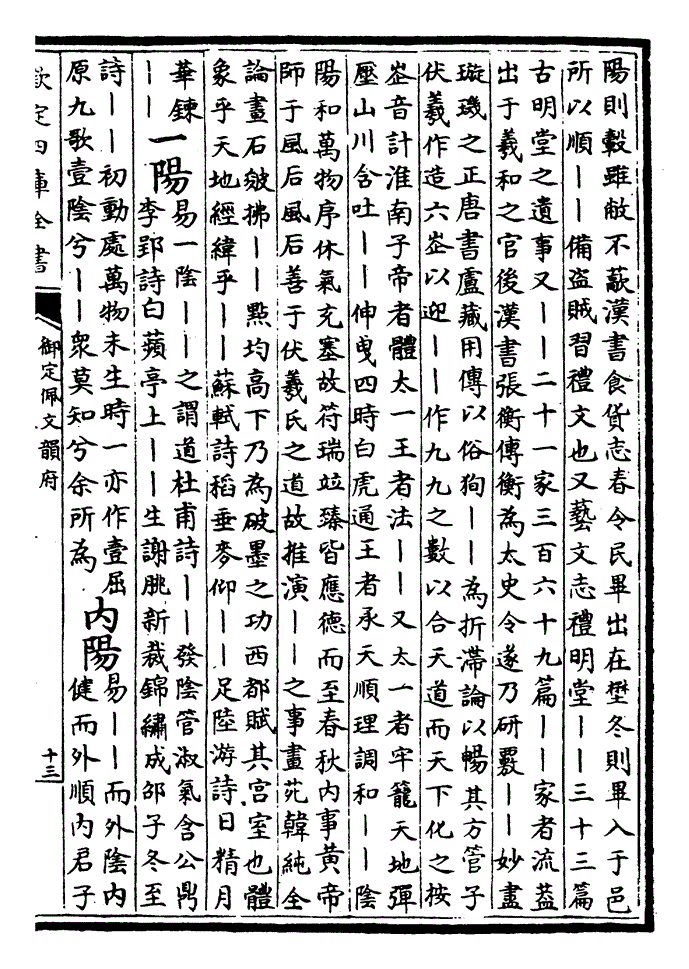 陽則轂雖敝不藃漢書食貨志春令民畢出在壄冬則畢入于邑
所以順丨丨備盗賊習禮文也又藝文志禮明堂丨丨三十三篇
古明堂之遺事又丨丨二十一家三百六十九篇丨丨家者流葢
出于羲和之官後漢書張衡傳衡為太史令遂乃研覈丨丨妙盡
璇璣之正唐書盧藏用傳以俗狥丨丨為折滯論以暢其方管子
伏羲作造六峜以迎丨丨作九九之數以合天道而天下化之按
峜音計淮南子帝者體太一王者法丨丨又太一者牢籠天地彈
壓山川含吐丨丨伸曳四時白虎通王者承天順理調和丨丨陰
陽和萬物序休氣充塞故符瑞竝臻皆應德而至春秋内事黄帝
師于風后風后善于伏羲氏之道故推演丨丨之事畫苑韓純全
論畫石皴拂丨丨點均高下乃為破墨之功西都賦其宫室也體
象乎天地經緯乎丨丨蘇軾詩稻垂麥仰丨丨足陸游詩日精月
華鍊
丨丨
一陽
易一陰丨丨之謂道杜甫詩丨丨發陰管淑氣含公鼎
李郢詩白蘋亭上丨丨生謝朓新裁錦繡成邵子冬至
詩丨丨初動處萬物未生時一亦作壹屈
原九歌壹陰兮丨丨衆莫知兮余所為
内陽
易丨丨而外陰内
健而外順内君子
欽定四庫全書
御定佩文韻府
十三